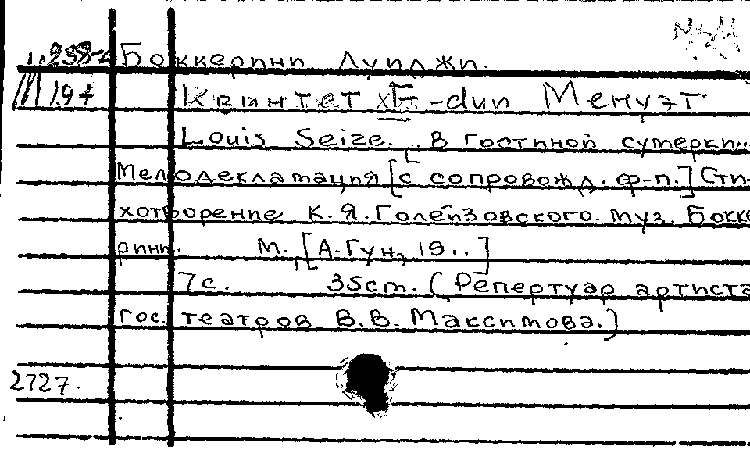 Боккерини Луиджи.
194 Квинтет E-dur Менуэт
Louis Seize. В гостиной сумерки..
Мелодекламация [с сопровожд. ф-п.] Сти-
хотворение К. Я. Голейзовского. Муз. Бокке
рини. М., [А. Гун, 19..]
7с. 35cm. (Репертуар артиста
Гос. театров В. В. Максимова.)
2727.